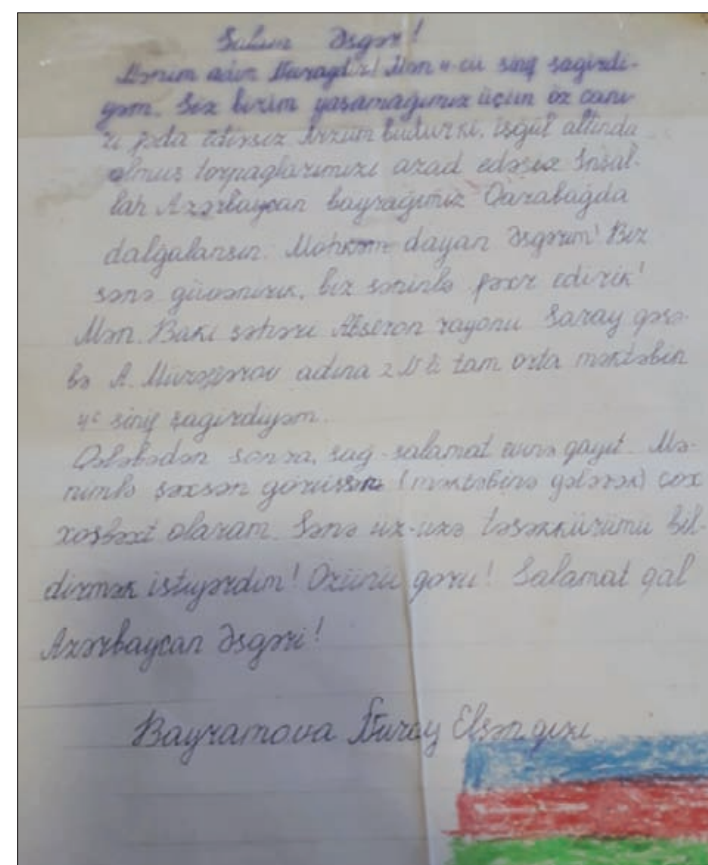 Salam Əsgər!
Mənim adım Nuraydır! Mən 4-cü sinif şagirdi-
yəm. Siz bizim yaşamağımız üçün öz canı-
zı fəda edirsiz Arzum budur ki, işğal altında
olmuş torpaglarımızı azad edəsiz İnşal-
lah Azərbaycan bayrağımız Qarabağda
dalğalansın. Möhkəm dayan Əsgərim! Biz
sənə güvənirik, biz səninlə fəxr edirik!
Mən Bakı şəhəri Abşeron rayonu Saray qəsə-
bə A. adına 2 №li tam orta məktəbin
4c sinif şagirdiyəm.
Qələbədən sonra, sağ-salamat evinə qayıt. Mə-
nimlə şəxsən görüşsən (məktəbimə gələrək) çox
xoşbəxt olaram. Sənə üz-üzə təşəkkürümü bil-
dirmək istəyərdim! Özünü qoru! Salamat qal
Azərbaycan Əsgəri!
Bayramova Nuray Elşən qızı